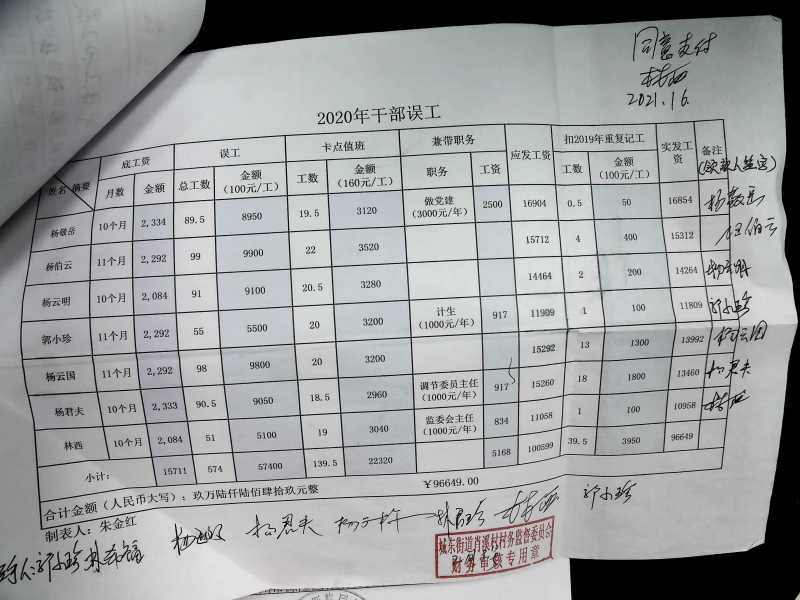 同意支付
林西
2021.1.6
2020年干部误工
姓名 摘要 底工资 误工 卡点值班 兼带职务 应发工资 扣2019年重复记工 实发工资 备注
(领款人签字)
月数 金额 总工数 金额(100元/工) 工数 金额(160元/工) 职务 工资 工数 金额(100元/工)
杨敬岳 10个月 2,334 89.5 8950 19.5 3120 做党建(3000元/年) 2500 16904 0.5 50 16854 杨敬岳
杨伯云 11个月 2,292 99 9900 22 3520 15712 4 400 15312 杨伯云
杨云明 10个月 2,084 91 9100 20.5 3280 14464 2 200 14264 杨云明
郭小珍 11个月 2,292 55 5500 20 3200 计生(1000元/年) 917 11909 1 100 11809 郭小珍
杨云国 11个月 2,292 98 9800 20 3200 15292 13 1300 13992 杨云国
杨君夫 10个月 2,333 90.5 9050 18.5 2960 调节委员主任(1000元/年) 917 15260 18 1800 13460 杨君夫
林西 10个月 2,084 51 5100 19 3040 监委会主任(1000元/年) 834 11058 1 100 10958 林西
小计： 15711 574 57400 139.5 22320 5168 100599 39.5 3950 96649
合计金额（人民币大写）：玖万陆仟陆佰肆拾玖元整 ￥96649.00
制表人：朱金红
杨君夫 林西 郭小珍
郭小珍
城东街道肖溪村村务监督委员会
财务审核专用章